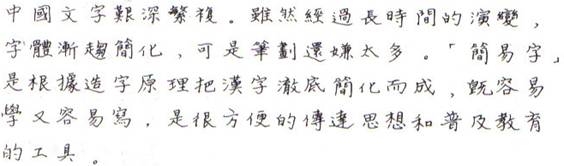 中國文字艱深繁複。雖然經過長時間的演變，
字體漸趨簡化，可是筆劃還嫌太多。「簡易字」
是根據造字原理把漢字澈底簡化而成，既容易
學又容易寫，是很方便的傳達思想和普及教育
的工具。